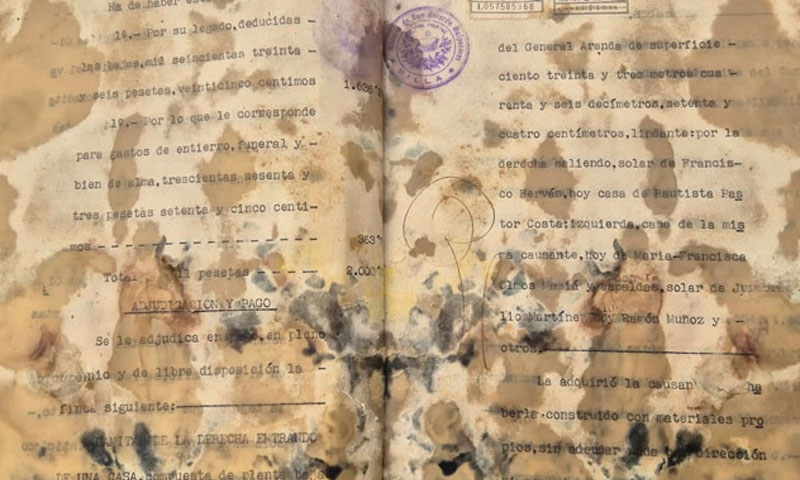 Ha de haber
1º.- Por su legado, deducidas -
las bajas, mil seiscientas treinta -
y seis pesetas, veinticinco centimos
1.636'
1º.- Por lo que le corresponde
para gastos de entierro, funeral, y -
bien de alma, trescientas sesenta y
tres pesetas setenta y cinco centi-
mos - - - - - - - - - - - - - -
363'
Total pesetas - - - -
2.000'
ADJUDICACION Y PAGO
Se le adjudica en pago, en pleno
y de libre disposición la -
finca siguiente:
MITAD DE LA DERECHA ENTRANDO
DE UNA CASA, compuesta de planta baja
SILLA
1.057585368
del General Aranda de superficie -
ciento treinta y tres metros cua -
renta y seis decímetros, setenta y
cuatro centímetros, lindante: por la
derecha saliendo, solar de Francis-
co Hervás, hoy casa de Bautista Pas
tor Costa: izquierda, casa de la mis
ma causante, hoy de Maria-Francisca
Olmos Masiá y espaldas, solar de
lio Martínez hoy Ramón Muñoz y -
otros.
La adquirió la causante ha
berla construido con materiales pro
pios, sin adeudar nada dirección